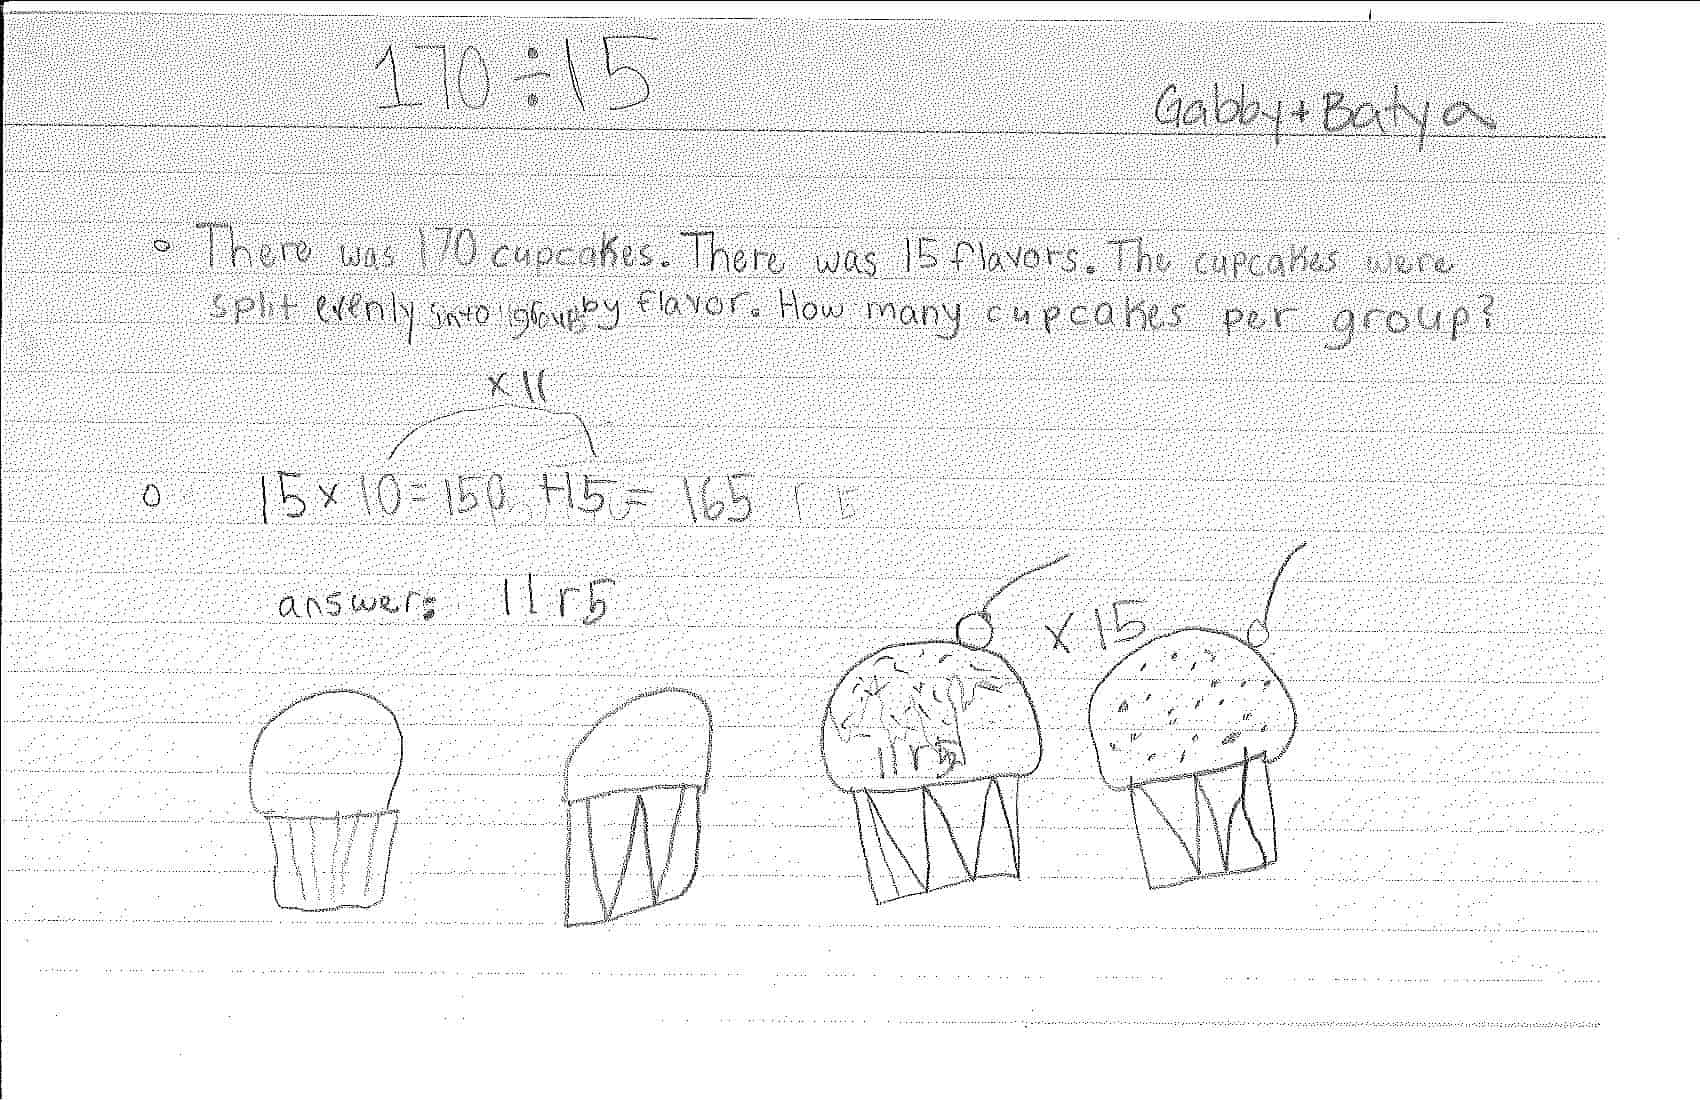 170÷15
Gabby + Batya
There was 170 cupcakes. There was 15 flavors. The cupcakes were
split evenly into group by flavor. How many cupcakes per group?
x 11
15 x 10 = 150, +15 = 165 r 5
answer: 11 r5
x 15
11 r5